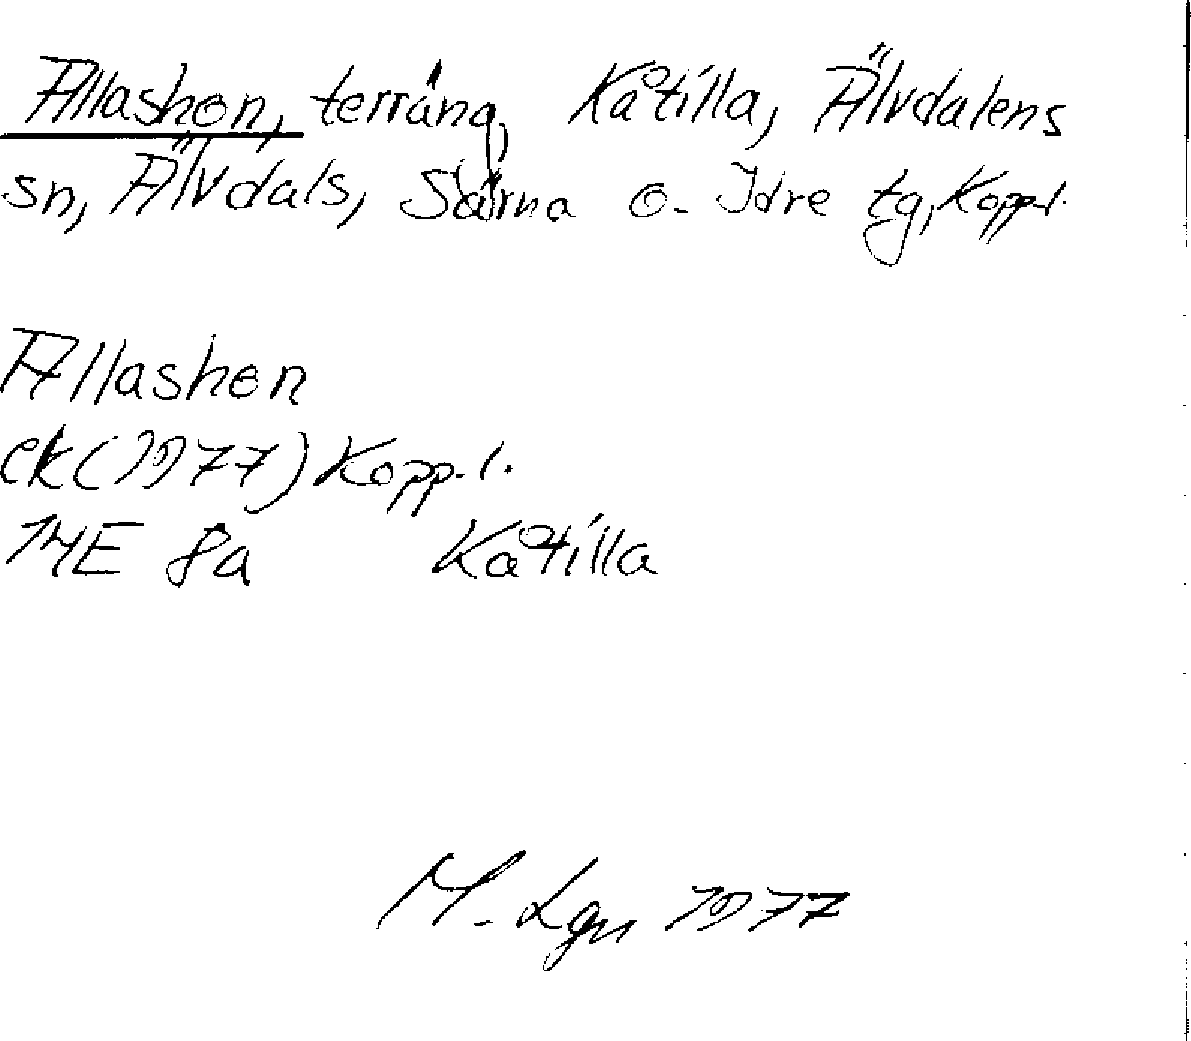 Allashon, terräng, Kåtilla, Älvdalens
sn, Älvdals, Särna o. Idre tg, Kopp.l.
Allashon
ek (1977) Kopp.l.
14E 8a Kåtilla
M. Lgn 1977